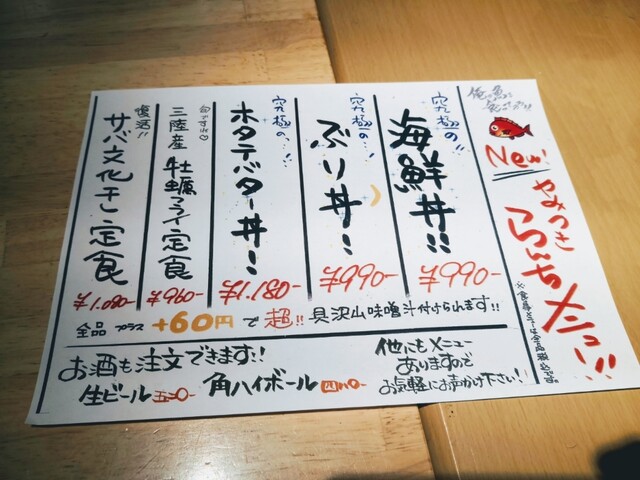 New!
やみつき
らんちメニュー!!
究極の!!
海鮮丼!!
¥990-
究極の…!
ぶり丼!
¥990-
究極の…!
ホタテバター丼!
¥1.180-
旬です
三陸産 牡蠣フライ定食
¥960-
復活!!
サバ文化干し定食
¥1.080-
全品 プラス +60円で超!! 具沢山味噌汁付けられます!!
お酒も注文できます!!
生ビール
角ハイボール
他にもメニュー
ありますので
お気軽にお声かけ下さい!